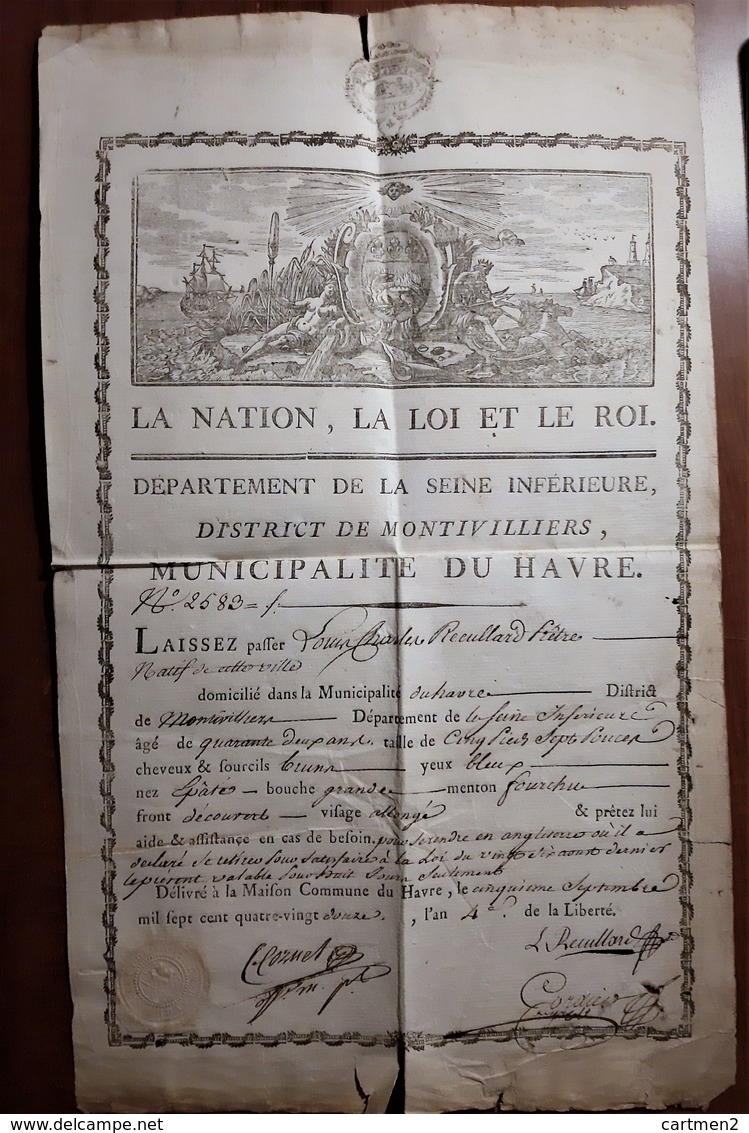 LA NATION, LA LOI ET LE ROI.
DÉPARTEMENT DE LA SEINE INFÉRIEURE,
DISTRICT DE MONTIVILLIERS,
MUNICIPALITÉ DU HAVRE.
N.° 2583
LAISSEZ passer Louis Charles Recullard Prêtre
Natif de cette ville
domicilié dans la Municipalité du havre District
de Montivilliers Département de la Seine Inferieure
âgé de quarante deux ans taille de Cinq Pieds Sept Pouces
cheveux & sourcils bruns yeux bleux
nez Epâté bouche grande menton fourchu
front découvert visage allongé & prêtez lui
aide & assistance en cas de besoin, pour se rendre en angleterre où il a
declaré se retirer pour satisfaire à la Loi du vingt six aout dernier
le présent valable pour huit Jours Seulement
Délivré à la Maison Commune du Havre, le cinquieme Septembre
mil sept cent quatre-vingt douze, l'an 4e. de la Liberté.
L. Recullard
C. Cornet
cartmen2